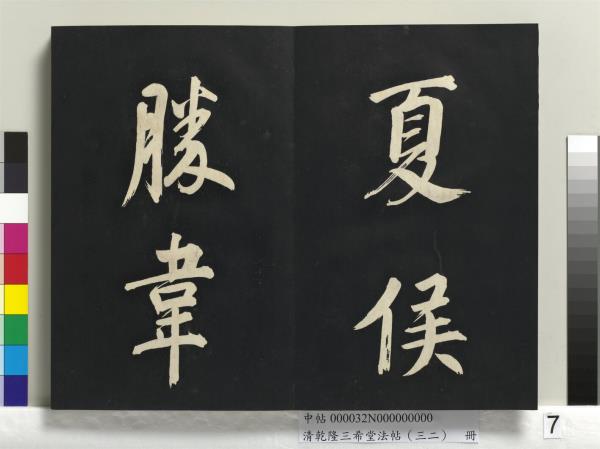 夏侯
勝韋
中帖 000032N000000000
清乾隆三希堂法帖(三二) 冊
7